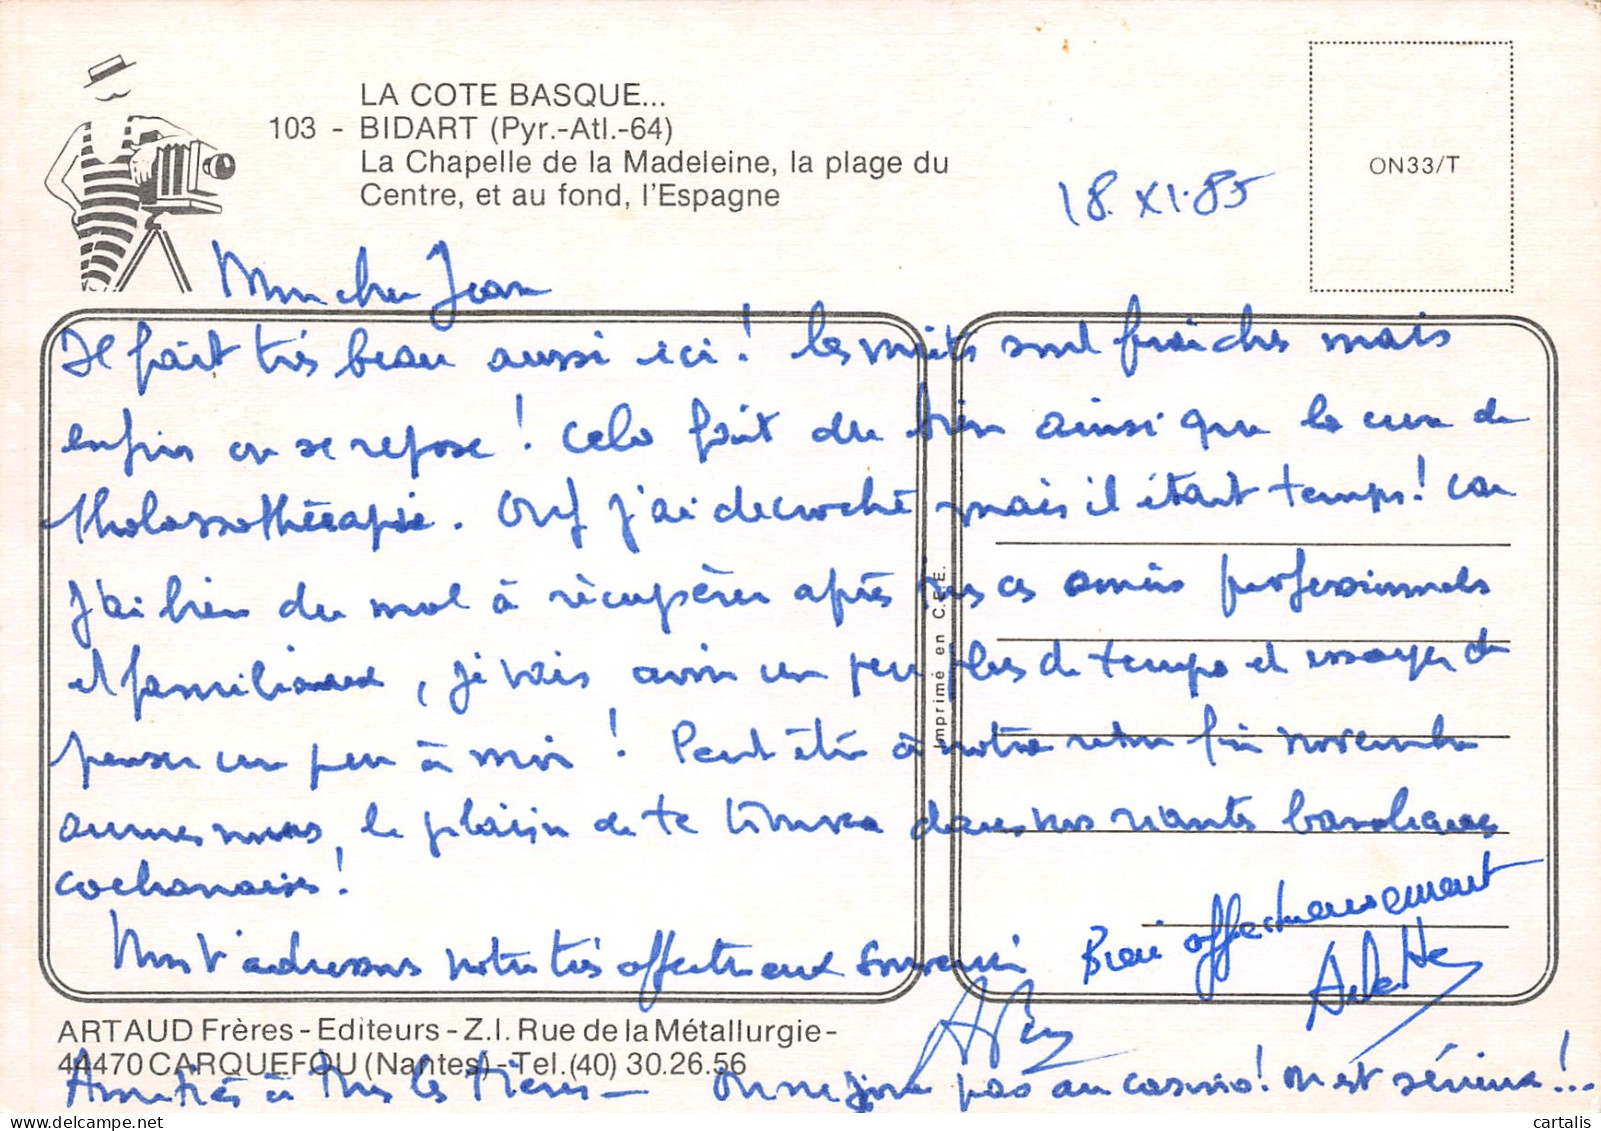 LA COTE BASQUE...
103 - BIDART (Pyr.-Atl.-64)
La Chapelle de la Madeleine, la plage du
Centre, et au fond, l'Espagne
18.XI.85
ON33/T
Mon cher Jean
Il fait très beau aussi ici! les nuits sont fraîches mais
enfin on se repose! Cela fait du bien ainsi que la cure de
thalassothérapie. Ouf j'ai décroché mais il était temps! Car
j'ai bien du mal à récupérer après ces années professionnels
et familiaux, je vais avoir un peu plus de temps et essayer de
penser un peu à moi! Peut être à notre retour fin novembre
aurons nous, le plaisir de te trouver dans nos riantes
cochonaises!
Nous t'adressons notre très affectueux souvenir
Bien affectueusement
Arlette
Imprimé en C.E.E.
ARTAUD Frères - Editeurs - Z.I. Rue de la Métallurgie -
44470 CARQUEFOU (Nantes) - Tel.(40) 30.26.56
Amitiés à tous les tiens - On ne joue pas au casino! on est sérieux!...
cartalis